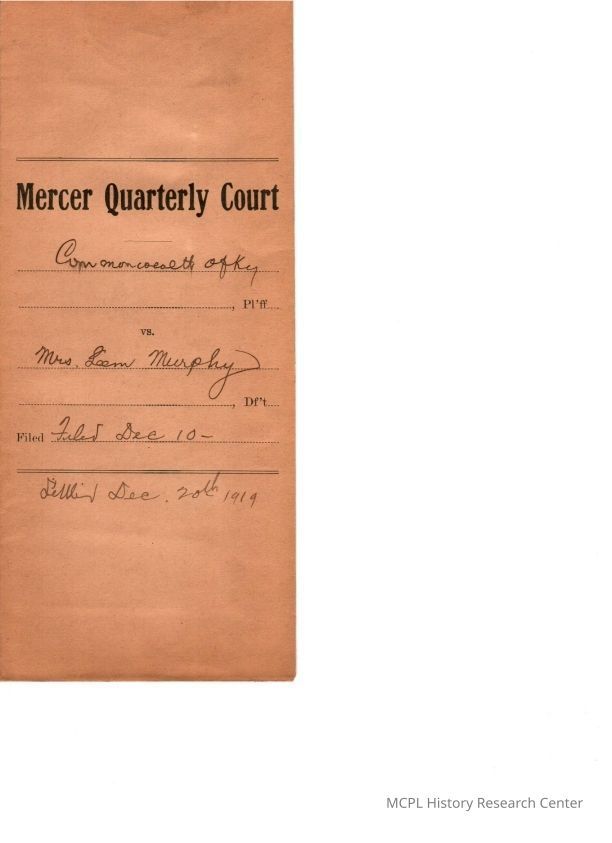 Mercer Quarterly Court
Commonwealth of Ky
, Pl'ff.
vs.
Mrs. Sam Murphy
, Df't.
Filed Filed Dec 10-
Dec. 20th 1919
MCPL History Research Center